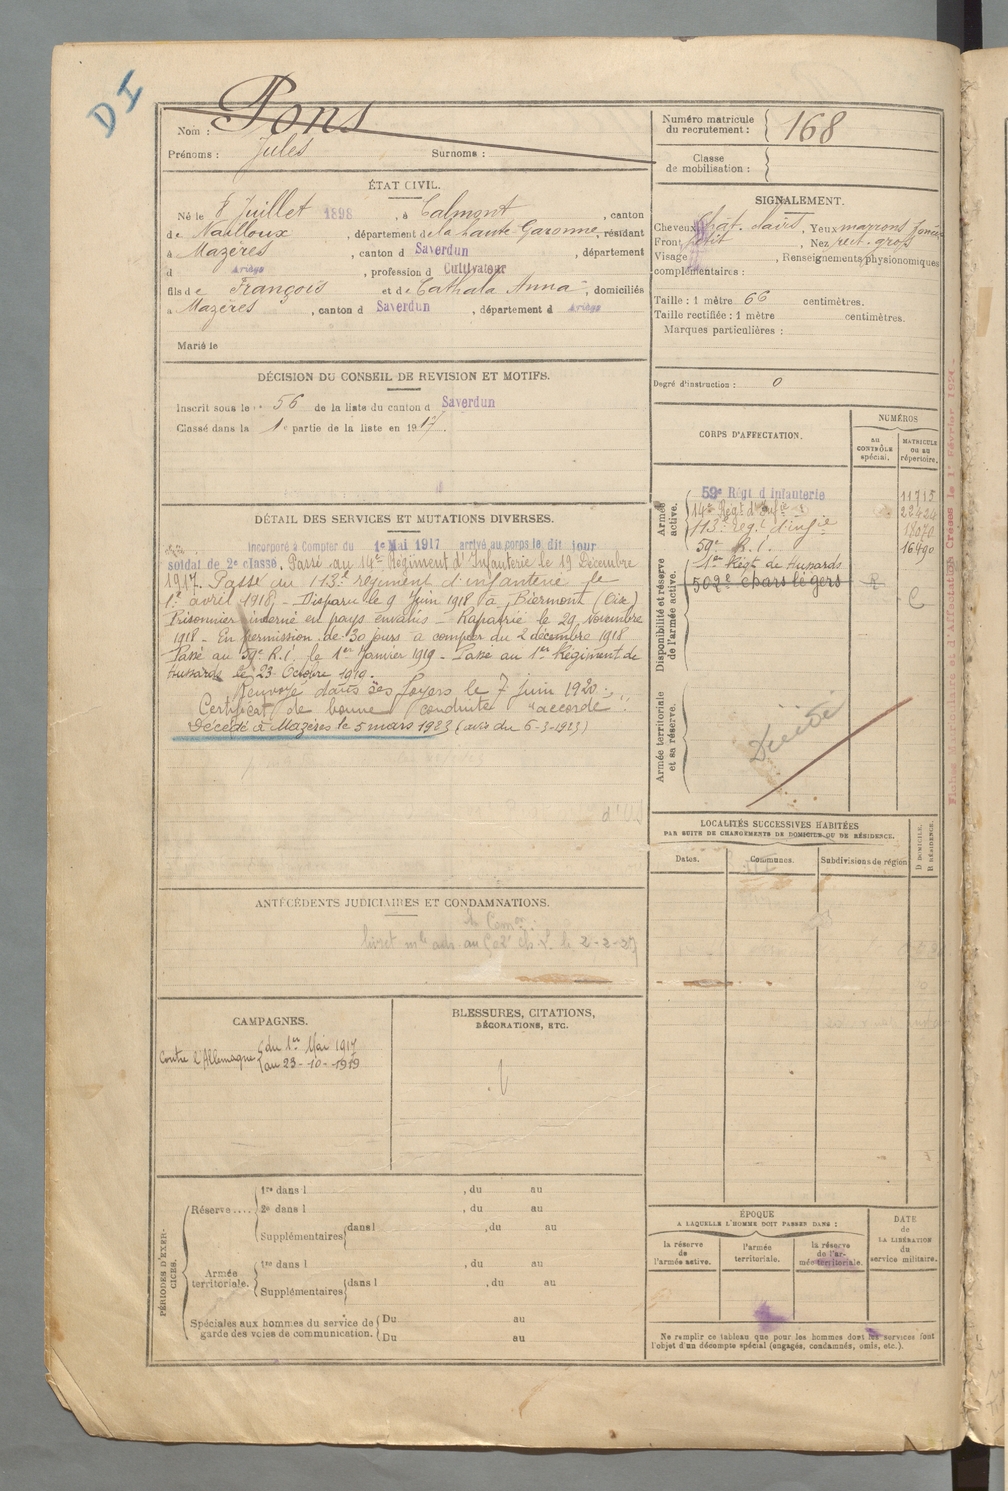 DI
Nom : Pons
Prénoms : Jules Surnoms :
Numéro matricule du recrutement : 168
Classe de mobilisation :
ÉTAT CIVIL.
Né le 8 Juillet 1898, à Calmont, canton
de Nailloux, département de la Haute-Garonne, résidant
à Mazères, canton d Saverdun, département
d Ariège, profession d Cultivateur
fils de François et de Cathala Anna, domiciliés
à Mazères, canton d Saverdun, département d Ariège
Marié le
SIGNALEMENT.
Cheveux chat. clairs, Yeux marrons foncé
Front petit, Nez rect. gros
Visage , Renseignements physionomiques
complémentaires :
Taille : 1 mètre 66 centimètres.
Taille rectifiée : 1 mètre centimètres.
Marques particulières :
Degré d'instruction : 0
DÉCISION DU CONSEIL DE REVISION ET MOTIFS.
Inscrit sous le n° 56 de la liste du canton d Saverdun
Classé dans la 1e partie de la liste en 1917.
DÉTAIL DES SERVICES ET MUTATIONS DIVERSES.
Incorporé à Compter du 1e Mai 1917 arrivé au corps le dit jour
soldat de 2e classe. Passé au 14e Régiment d'Infanterie le 19 Décembre
1917. Passé au 113e régiment d'infanterie le
1er avril 1918 - Disparu le 9 Juin 1918 à Biermont (Oise)
Prisonnier interné en pays envahis - Rapatrié le 29 novembre
1918 - En permission de 30 jours à compter du 2 décembre 1918
Passé au 59e R.I. le 1er Janvier 1919 - Passé au 1er Régiment de
Hussards le 23 Octobre 1919.
Renvoyé dans ses foyers le 7 juin 1920.
Certificat de bonne conduite "accordé".
Décédé à Mazères le 5 mars 1923 (avis du 6-3-1923)
CORPS D'AFFECTATION.
NUMÉROS
au CONTRÔLE spécial.
MATRICULE ou au répertoire.
Armée active.
59e Régt d Infanterie 11715
14e Régt d'Infie 22424
113e régt d'infie 18070
59e R.I. 16490
Disponibilité et réserve de l'armée active.
1er Régt de Hussards
502e chars légers R
Armée territoriale et sa réserve.
Décédé
LOCALITÉS SUCCESSIVES HABITÉES
PAR SUITE DE CHANGEMENTS DE DOMICILE OU DE RÉSIDENCE.
Dates. Communes. Subdivisions de région
D DOMICILE. R RÉSIDENCE.
ANTÉCÉDENTS JUDICIAIRES ET CONDAMNATIONS.
CAMPAGNES.
Contre l'Allemagne du 1er Mai 1917
au 23-10-1919
BLESSURES, CITATIONS,
DÉCORATIONS, ETC.
PÉRIODES D'EXERCICES.
Réserve.... 1re dans l , du au
2e dans l , du au
Supplémentaires dans l , du au
Armée territoriale. 1re dans l , du au
Supplémentaires dans l , du au
Spéciales aux hommes du service de garde des voies de communication. Du au
Du au
ÉPOQUE
A LAQUELLE L'HOMME DOIT PASSER DANS :
la réserve de l'armée active.
l'armée territoriale.
la réserve de l'armée territoriale.
DATE de LA LIBÉRATION du service militaire.
Ne remplir ce tableau que pour les hommes dont les services font
l'objet d'un décompte spécial (engagés, condamnés, omis, etc.).